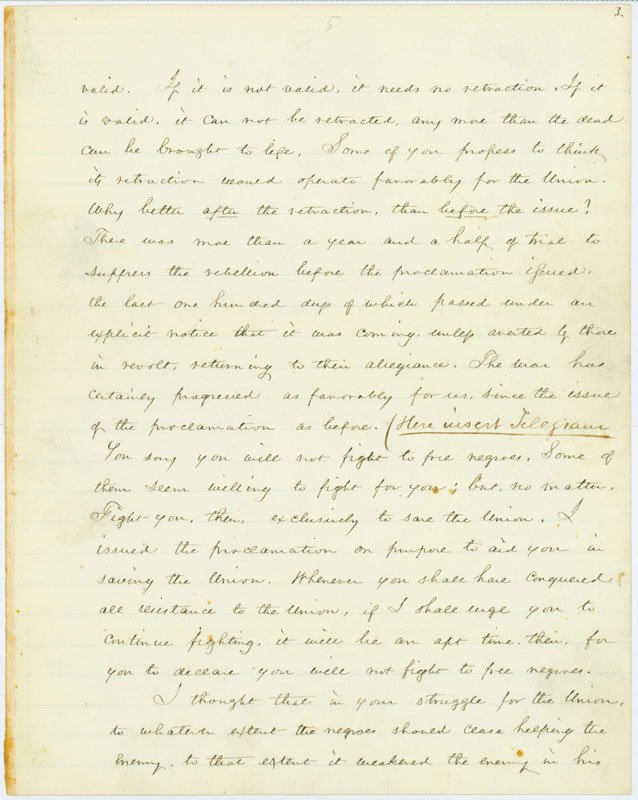 5
3.
valid. If it is not valid, it needs no retraction. If it
is valid, it can not be retracted, any more than the dead
can be brought to life. Some of you profess to think
its retraction would operate favorably for the Union.
Why better after the retraction, than before the issue?
There was more than a year and a half of trial to
suppress the rebellion before the proclamation issued,
the last one hundred days of which passed under an
explicit notice that it was coming, unless averted by those
in revolt, returning to their allegiance. The war has
certainly progressed as favorably for us, since the issue
of the proclamation as before. (Here insert Telegram
You say you will not fight to free negroes. Some of
them seem willing to fight for you; but, no matter.
Fight you, then, exclusively to save the Union. I
issued the proclamation on purpose to aid you in
saving the Union. Whenever you shall have conquered
all resistance to the Union, if I shall urge you to
continue fighting, it will be an apt time, then, for
you to declare you will not fight to free negroes.
I thought that in your struggle for the Union,
to whatever extent the negroes should cease helping the
enemy, to that extent it weakened the enemy in his